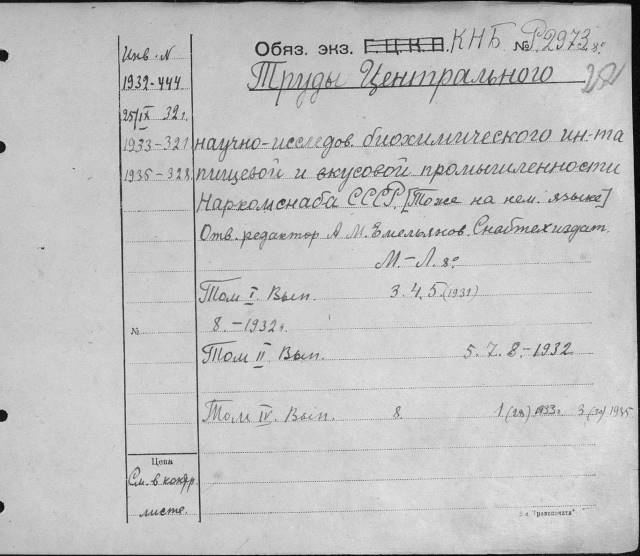 Инв. N
1932-444
25/IX 32 г.
1933-321
1935-328
№
Цена
См. в контр
листе.
Обяз. экз. Г.Ц.К.П. КНБ №Р2973 8º
Труды Центрального
научно-исследов. биохимического ин-та
пищевой и вкусовой промышленности
Наркомснаба СССР. [Тоже на нем. языке]
Отв. редактор А. М. Емельянов. Снабтехиздат.
М.-Л. 8º
Том I. Вып. 3. 4. 5. (1931)
8. -1932 г.
Том II Вып. 5. 7. 8.-1932
Том IV. Вып. 8. 1 (28) 1933 г. 3 (30) 1935